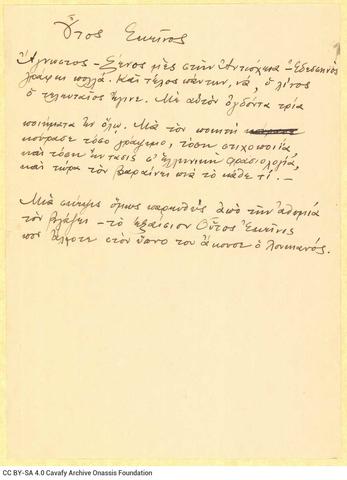 Οὗτος Ἐκεῖνος
Ἄγνωστος – ξένος μὲς στὴν Ἀντιόχεια – Ἐδεσσηνὸς
γράφει πολλά. Καὶ τέλος πάντων, νά, ὁ λίνος
ὁ τελευταῖος ἔγινε. Μὲ αὐτὸν ὀγδόντα τρία
ποιήματα ἐν ὅλῳ. Μὰ τὸν ποιητὴ
κούρασε τόσο γράψιμο, τόση στιχοποιΐα
καὶ τόση ἔντασις σ' ἑλληνικὴ φρασιολογία,
καὶ τώρα τὸν βαραίνει πιὰ τὸ κάθε τί. –
Μιὰ σκέψις ὅμως παρευθὺς ἀπὸ τὴν ἀθυμία
τὸν βγάζει – τὸ ἐξαίσιον Οὗτος Ἐκεῖνος
ποὺ ἄλλοτε στὸν ὕπνο του ἄκουσε ὁ Λουκιανός.
CC BY-SA 4.0 Cavafy Archive Onassis Foundation